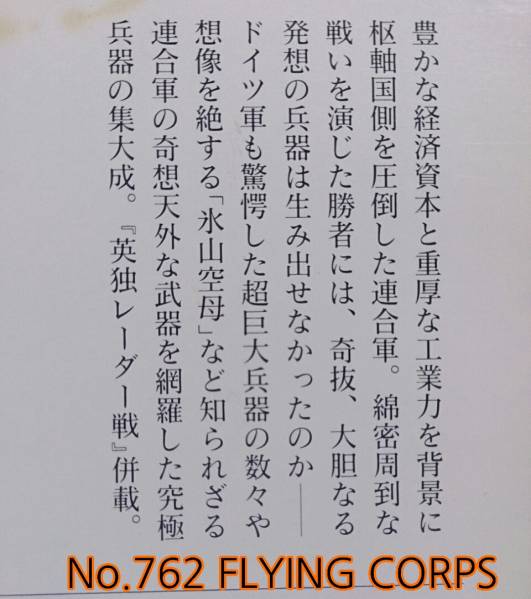 豊かな経済資本と重厚な工業力を背景に
枢軸国側を圧倒した連合軍。綿密周到な
戦いを演じた勝者には、奇抜、大胆なる
発想の兵器は生み出せなかったのか――
ドイツ軍も驚愕した超巨大兵器の数々や
想像を絶する「氷山空母」など知られざる
連合軍の奇想天外な武器を網羅した究極
兵器の集大成。『英独レーダー戦』併載。
No.762 FLYING CORPS